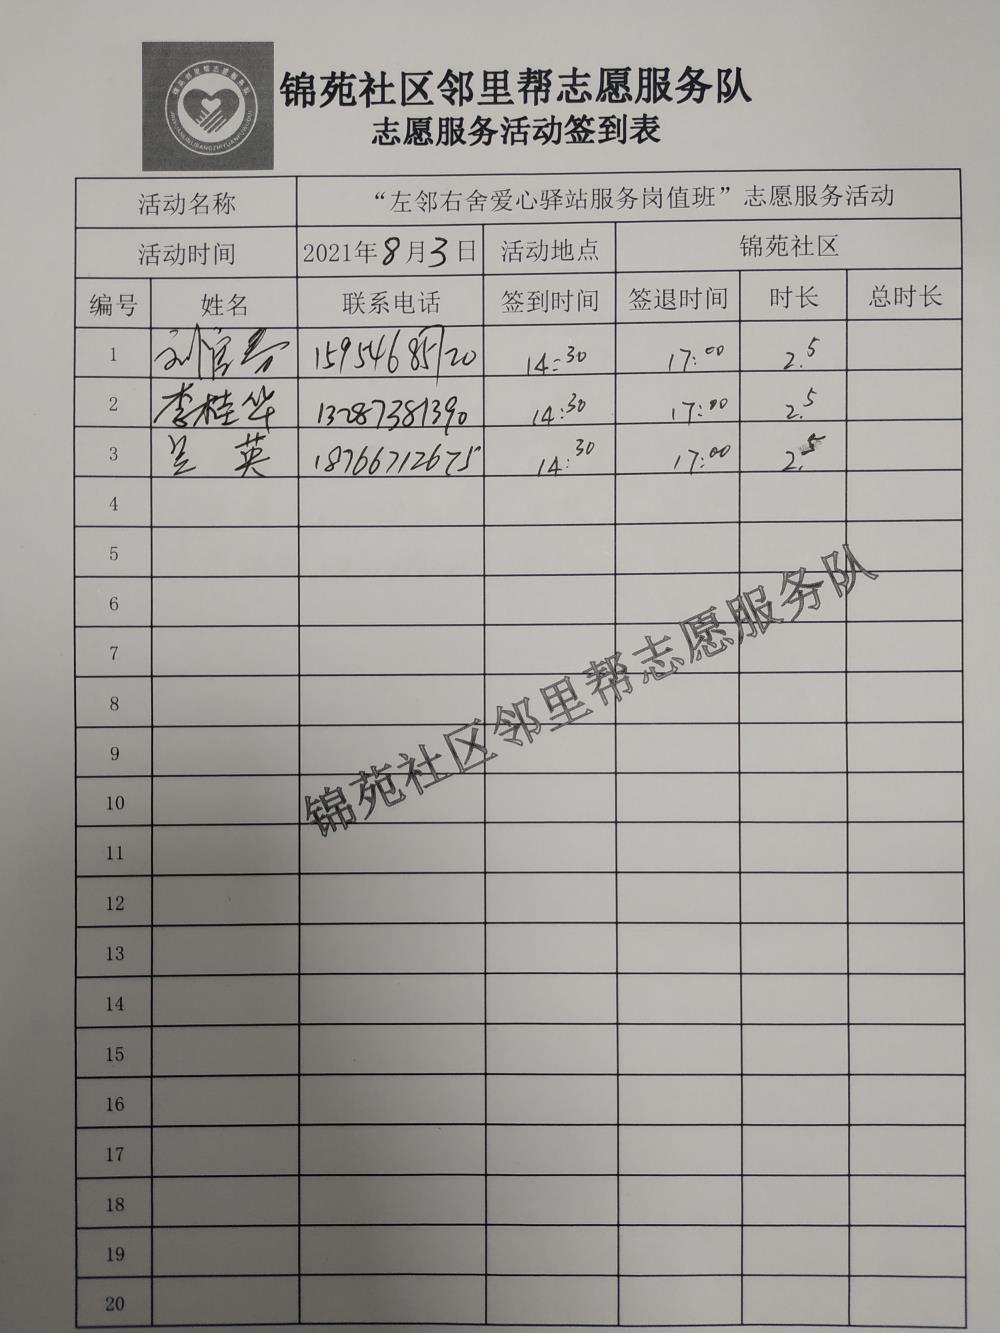 锦苑社区邻里帮志愿服务队
志愿服务活动签到表
活动名称 “左邻右舍爱心驿站服务岗值班”志愿服务活动
活动时间 2021年8月3日 活动地点 锦苑社区
编号 姓名 联系电话 签到时间 签退时间 时长 总时长
1 刘官 14:30 17:00 2.5
2 李桂华 13287381390 14:30 17:00 2.5
3 兰英 18766712675 14:30 17:00 2.5
4
5
6
7
8
9
10
11
12
13
14
15
16
17
18
19
20
锦苑社区邻里帮志愿服务队